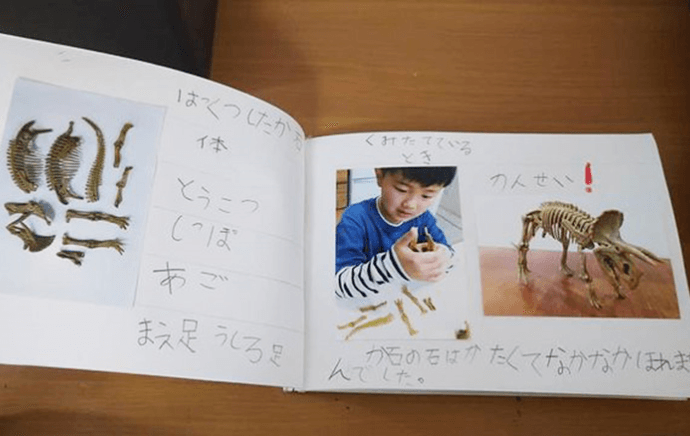 はくつしたか石
体
とうこつ
しっぽ
あご
まえ足 うしろ足
くみたてている
とき
かんせい!
か石の石はかたくてなかなかほれませ
んでした。